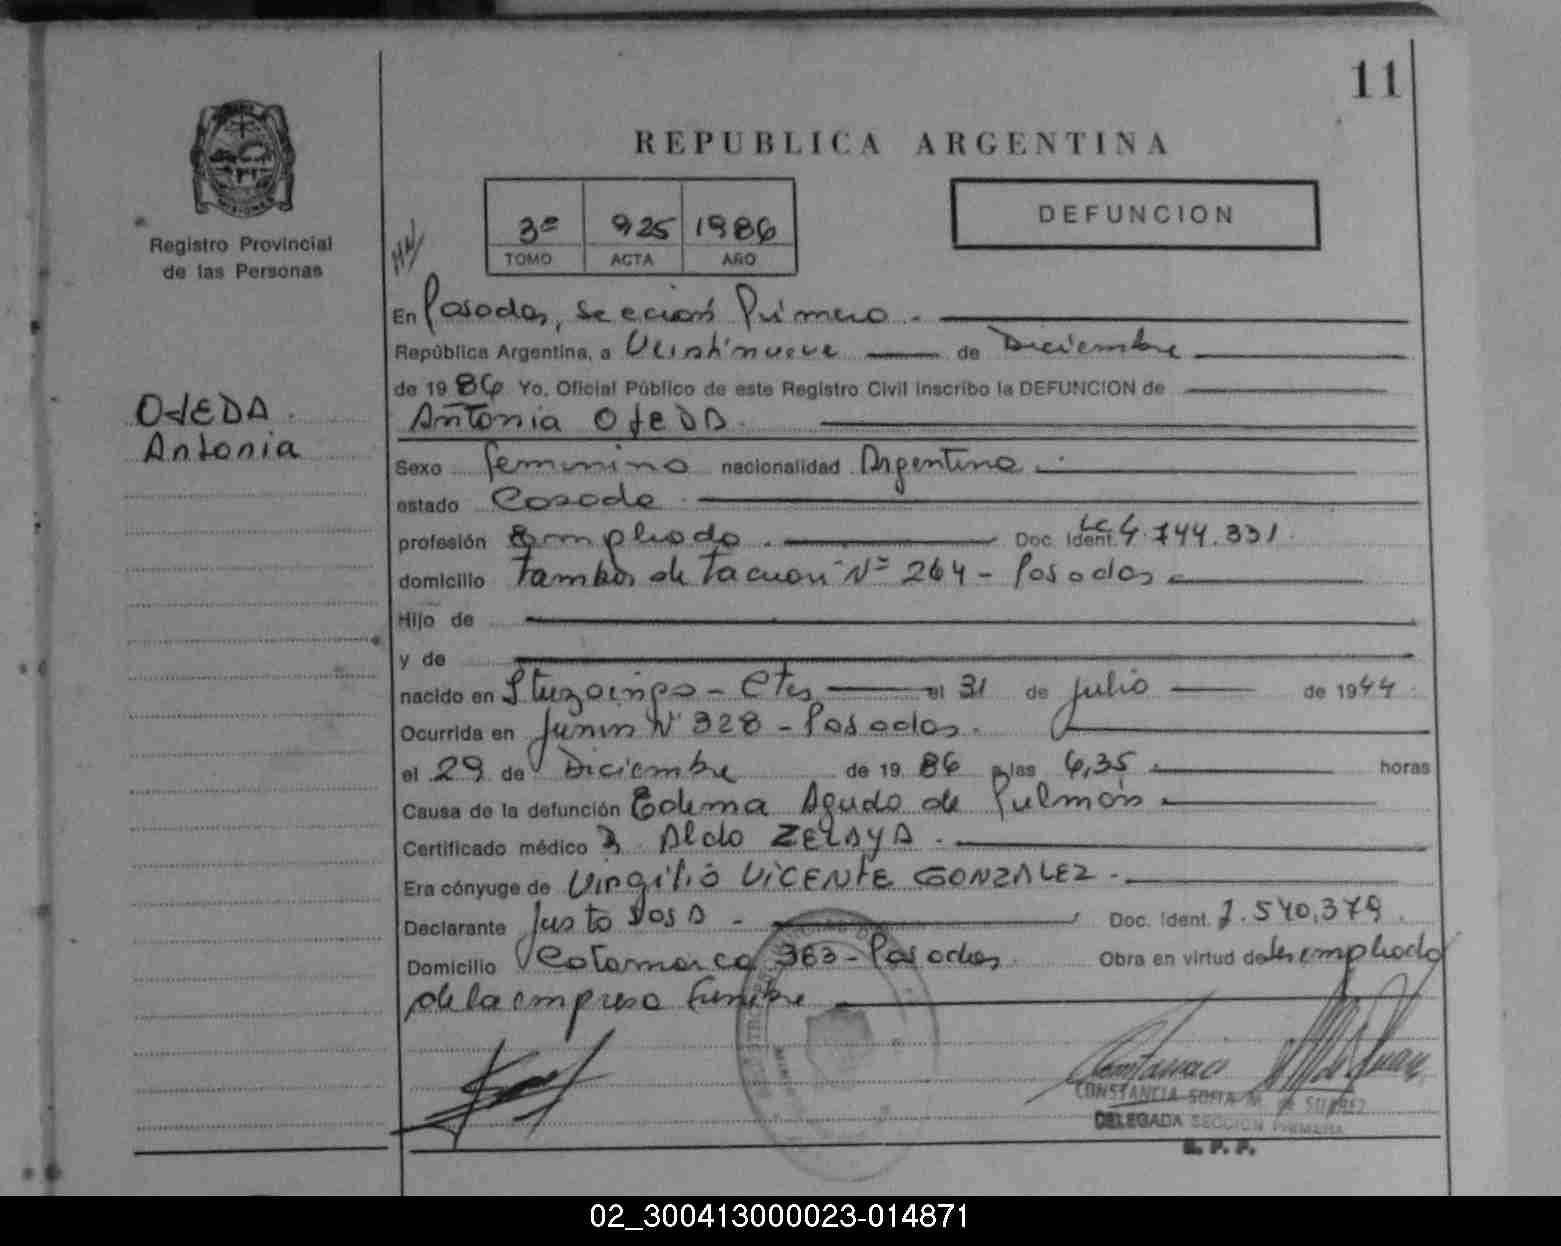 11
REPUBLICA ARGENTINA
MISIONES
Registro Provincial
de las Personas
3º 925 1986
TOMO ACTA AÑO
DEFUNCION
En Posadas, Sección Primera.
República Argentina, a Veintinueve de Diciembre
de 1986 Yo, Oficial Público de este Registro Civil inscribo la DEFUNCION de
OJEDA
Antonia
Antonia OJEDA.
Sexo femenino nacionalidad Argentina
estado Casada
profesión Empleada Doc. Ident. LC 4.744.331
domicilio Tambor de Tacuarí Nº 264 - Posadas
Hijo de
y de
nacido en Ituzaingo - Ctes el 31 de julio de 1944
Ocurrida en Junin Nº 328 - Posadas.
el 29 de Diciembre de 1986 a las 6,35 horas
Causa de la defunción Edema Agudo de Pulmón
Certificado médico Aldo ZELAYA.
Era cónyuge de Virgilio VICENTE GONZALEZ.
Declarante Justo SOSA - Doc. Ident. 7.540.379
Domicilio Catamarca 363 - Posadas Obra en virtud de ser empleado
de la empresa funebre
CONSTANCIA SOFIA M. DE SUAREZ
DELEGADA SECCION PRIMERA
R. P. P.
02_300413000023-014871